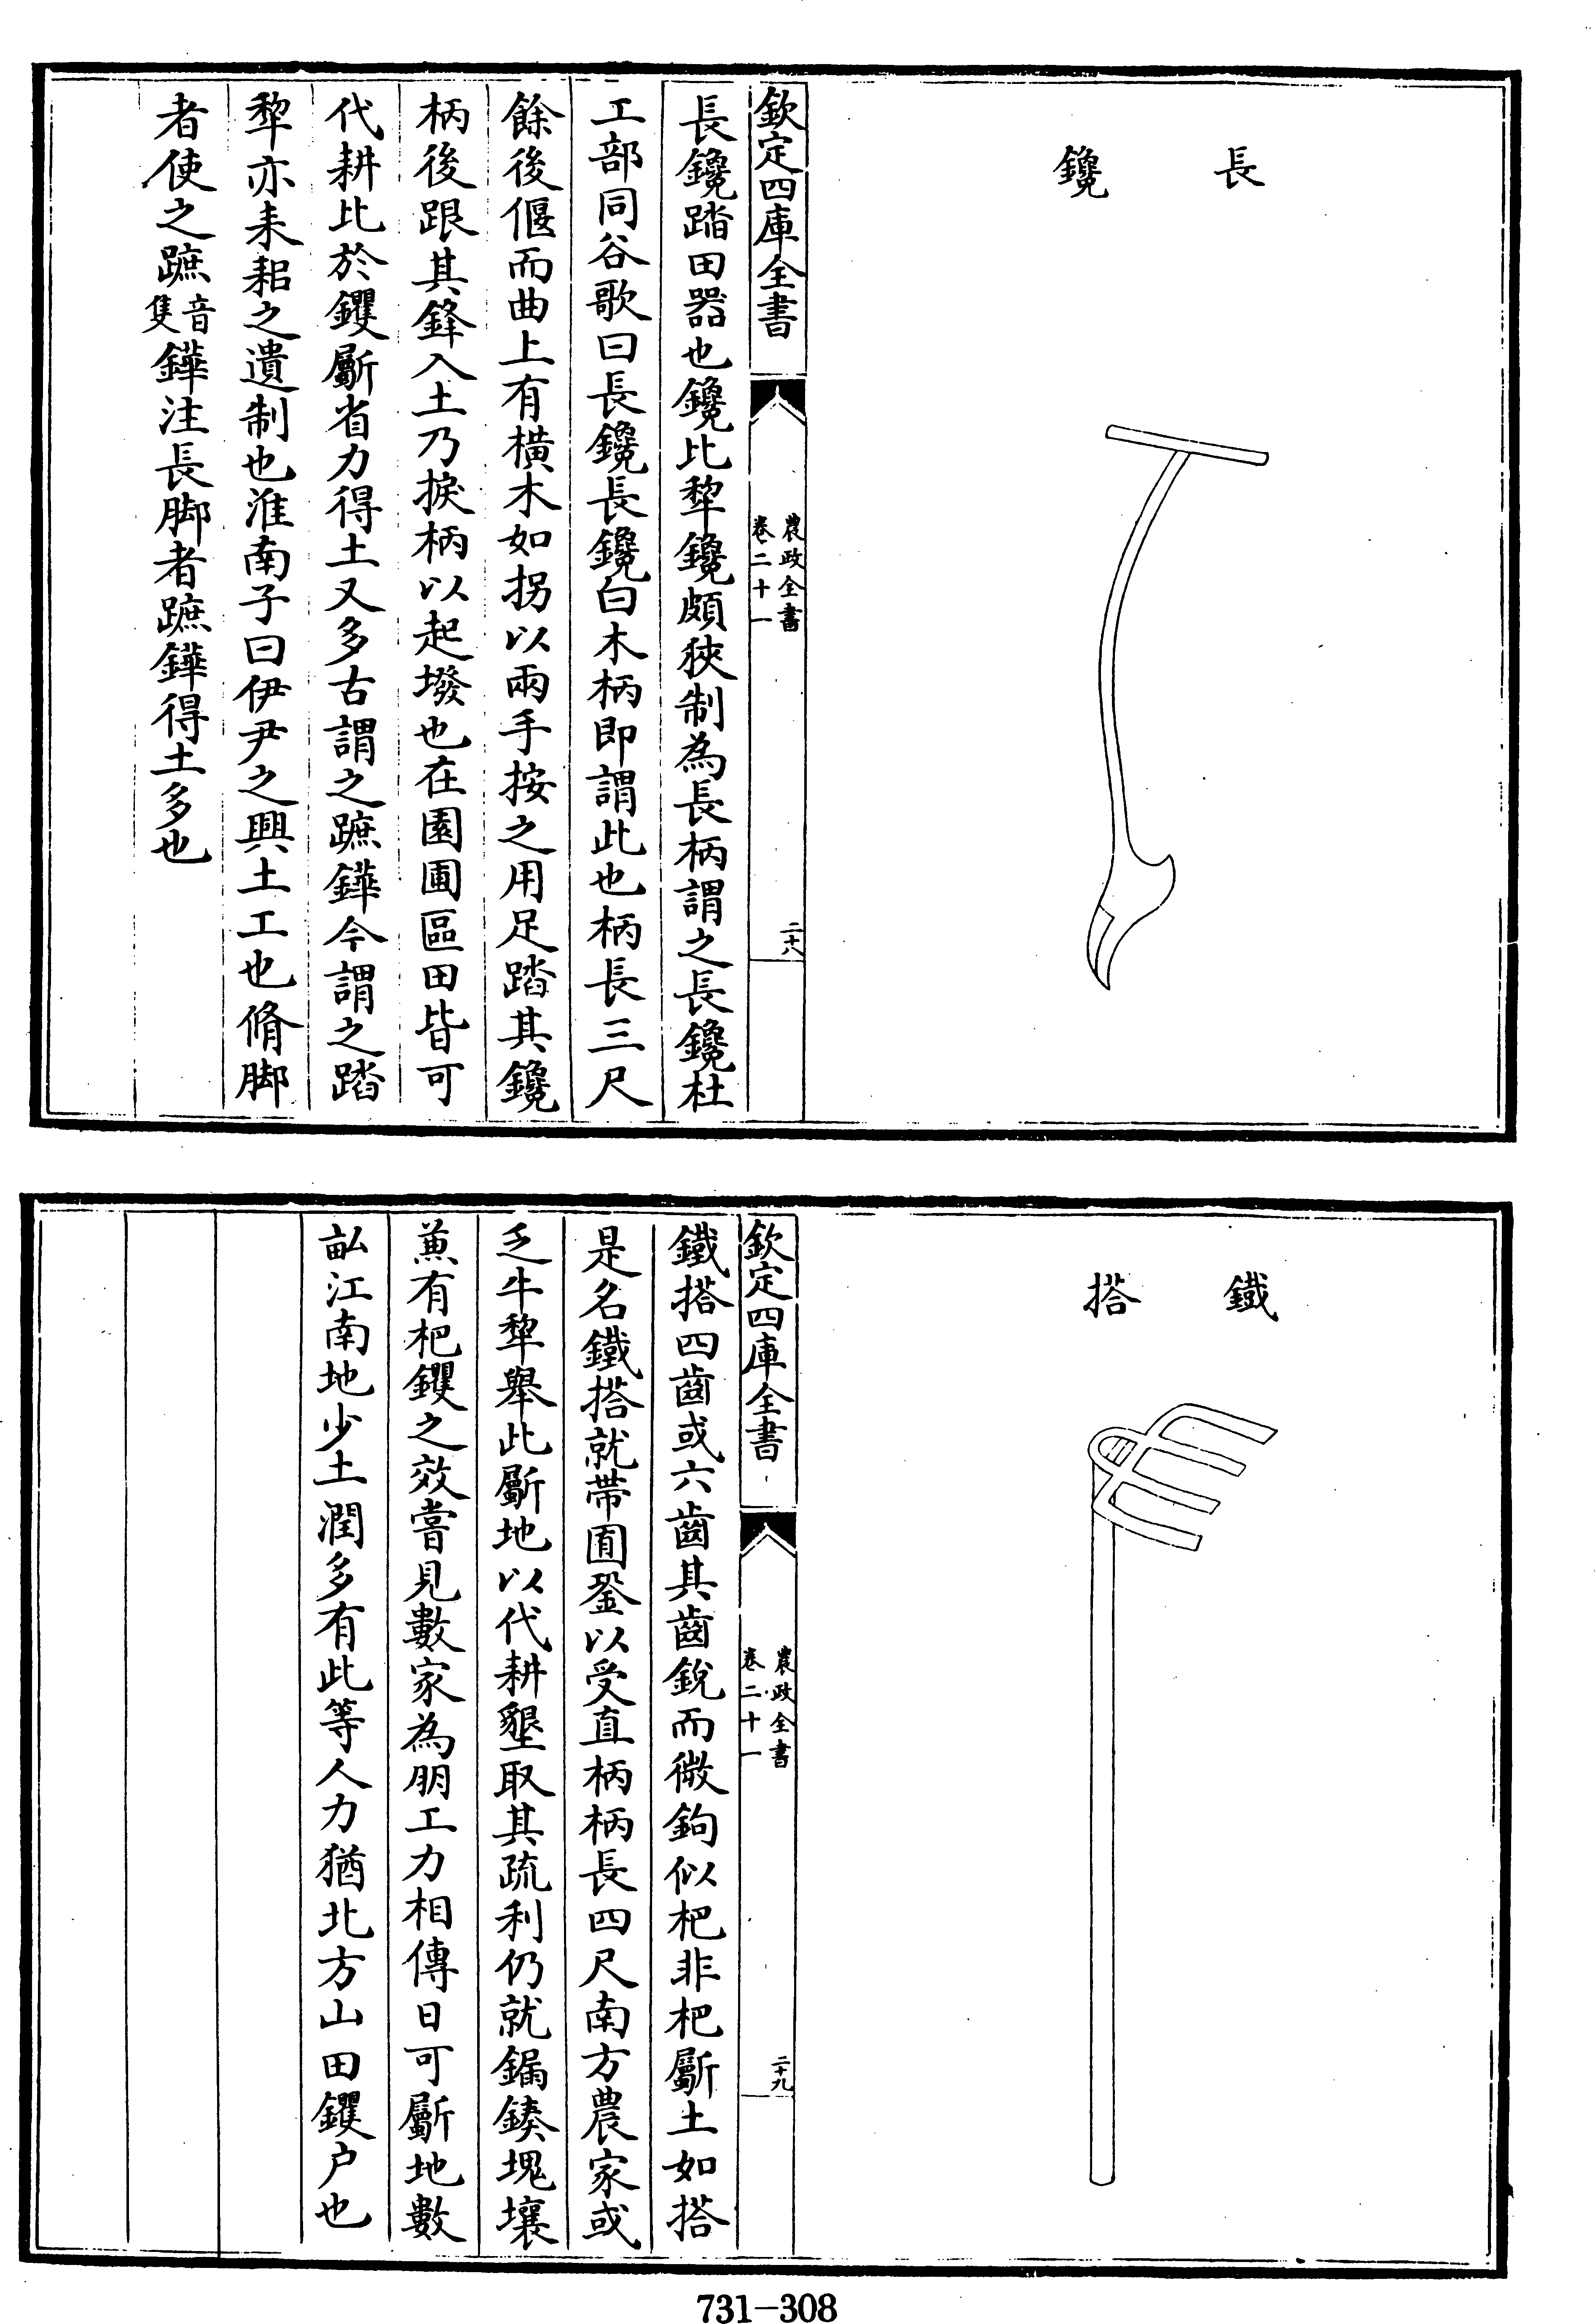 長鑱
欽定四庫全書
農政全書
卷二十一
二十八
長鑱踏田器也鑱比犂鑱頗狹制為長柄謂之長鑱杜
工部同谷歌曰長鑱長鑱白木柄即謂此也柄長三尺
餘後偃而曲上有橫木如拐以兩手按之用足踏其鑱
柄後跟其鋒入土乃捩柄以起墢也在園圃區田皆可
代耕比於钁斸省力得土又多古謂之蹠鏵今謂之踏
犂亦耒耜之遺制也淮南子曰伊尹之興土工也脩脚
者使之蹠音隻鏵注長脚者蹠鏵得土多也
鐵搭
欽定四庫全書
農政全書
卷二十一
二十九
鐵搭四齒或六齒其齒銳而微鉤似杷非杷斸土如搭
是名鐵搭就帶圓銎以受直柄柄長四尺南方農家或
乏牛犂舉此斸地以代耕墾取其疏利仍就鎘鏤塊壤
兼有杷钁之效嘗見數家為朋工力相傳日可斸地數
畝江南地少土潤多有此等人力猶北方山田钁户也
731-308